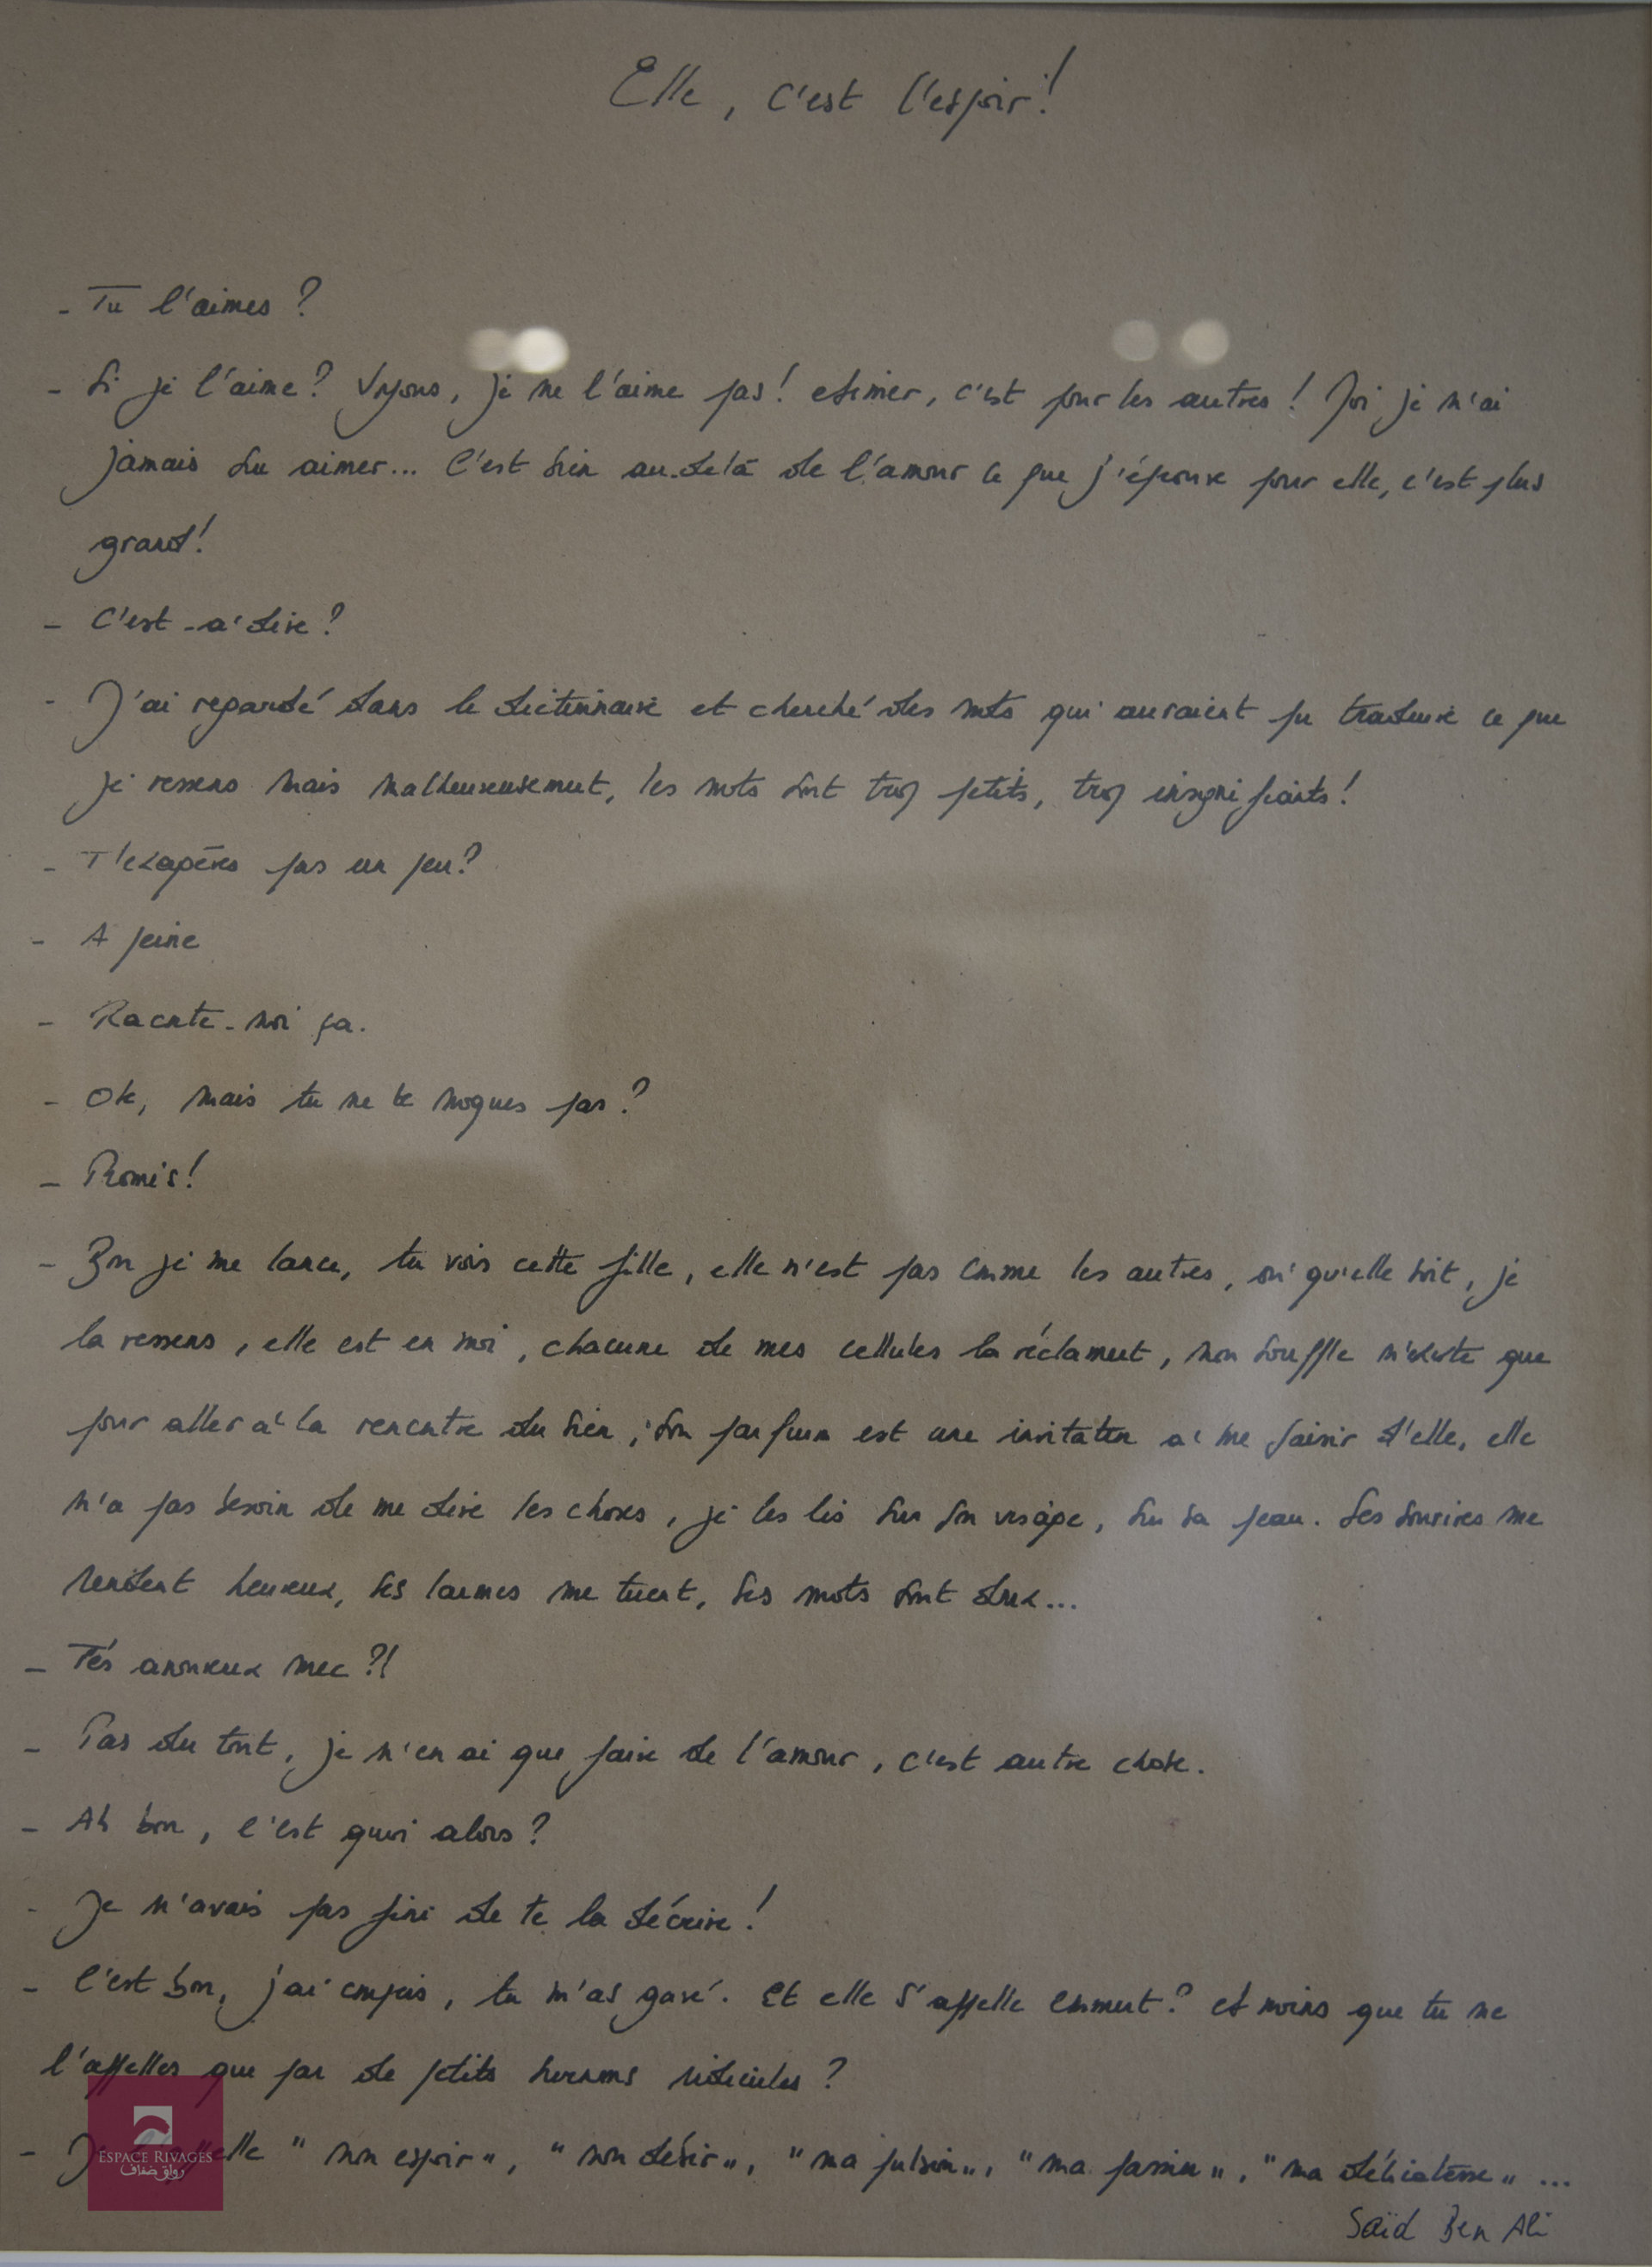 Elle, c'est l'espoir!
- Tu l'aimes ?
- Si je l'aime? Voyons, je ne l'aime pas! Aimer, c'est pour les autres! Moi je n'ai
jamais su aimer... C'est bien au-delà de l'amour ce que j'éprouve pour elle, c'est plus
grand!
- C'est-à-dire?
- J'ai regardé dans le dictionnaire et cherché des mots qui auraient pu traduire ce que
je ressens mais malheureusement, les mots sont trop petits, trop insignifiants!
- T'exagères pas un peu?
- A peine
- Raconte-moi ça.
- Ok, mais tu ne te moques pas?
- Promis!
- Bon je me lance, tu vois cette fille, elle n'est pas comme les autres, où qu'elle soit, je
la ressens, elle est en moi, chacune de mes cellules la réclament, mon souffle n'existe que
pour aller à la rencontre du sien, son parfum est une invitation à me saisir d'elle, elle
n'a pas besoin de me dire les choses, je les lis sur son visage, sur sa peau. Ses sourires me
rendent heureux, ses larmes me tuent, ses mots sont doux...
- T'és amoureux mec ?!
- Pas du tout, je n'en ai que faire de l'amour, c'est autre chose.
- Ah bon, c'est quoi alors?
- Je n'avais pas fini de te la décrire!
- C'est bon, j'ai compris, tu m'as gavé. Et elle s'appelle comment? A moins que tu ne
l'appelles que par de petits surnoms ridicules?
- Je l'appelle "mon espoir", "mon désir", "ma pulsion", "ma passion", "ma délicatesse" ...
Saïd Ben Ali
ESPACE RIVAGES
رواق ضفاف